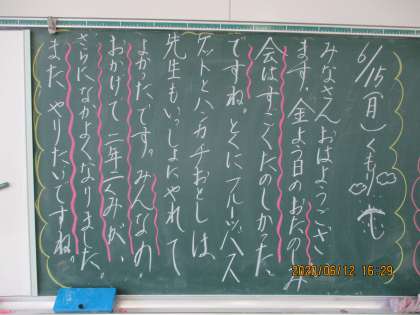 6/15(月)くもり
みなさんおはようござい
ます。金よう日のおたのしみ
会はすごくたのしかった
ですね。とくにフルーツバス
ケットとハンカチおとしは、
先生もいっしょにやれて
よかったです。みんなの
おかげで二年二くみが、
さらになかよくなりました。
また やりたいですね。
2020/06/12 16:29